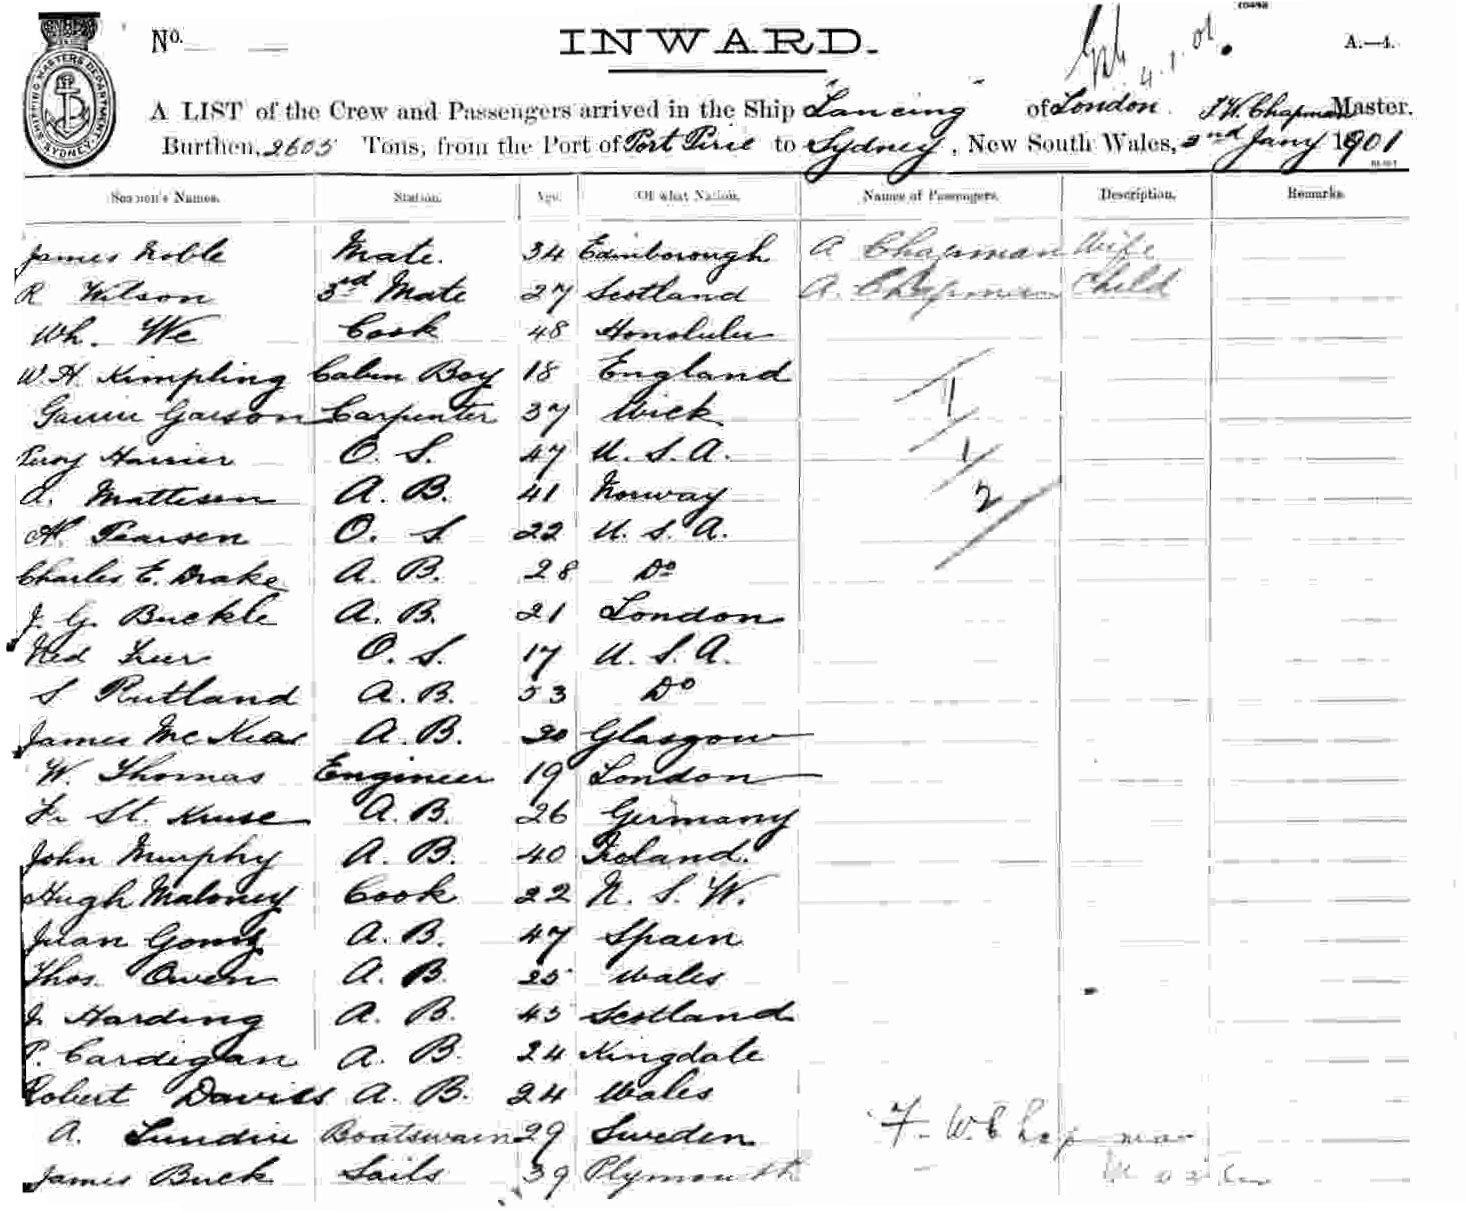 10498
SHIPPING MASTERS DEPARTMENT SYDNEY
No.
INWARD.
4.1.01.
A.—4.
A LIST of the Crew and Passengers arrived in the Ship "Lancing" of London. F.W. Chapman Master.
Burthen, 2605 Tons, from the Port of Port Pirie to Sydney, New South Wales, 3rd Jany 1901
Seamen's Names. Station. Age. Of what Nation. Names of Passengers. Description. Remarks.
James Noble Mate. 34 Edinborough A Chapman Wife
R Wilson 3rd Mate 27 Scotland A. Chapman Child
Wh. We Cook 48 Honolulu
W. H. Kimpling Cabin Boy 18 England
Garson Carpenter 37 Wick 1
Leroy Harrier O. S. 47 U. S. A. 1
A. Mattisen A. B. 41 Norway 2
Pearsen O. S 22 U. S. A.
Charles E. Drake A. B. 28 Do
J. G. Buckle A. B. 21 London
Ned Freer O. S. 17 U. S. A.
S Rutland A. B. 53 Do
James McKear A. B. 20 Glasgow
W. Thomas Engineer 19 London
Fr. St. Kruse A. B. 26 Germany
John Murphy A. B. 40 Ireland.
Hugh Maloney Cook 22 N. S. W.
Juan Gomez A. B. 47 Spain
Thos. Owen A. B. 25 Wales
J. Harding A. B. 45 Scotland
P. Cardigan A. B. 24 Kingdale
Robert Davies A. B. 24 Wales
A. Lundin Boatswain 29 Sweden F. W. Chapman
James Buck Sails 39 Plymouth Master